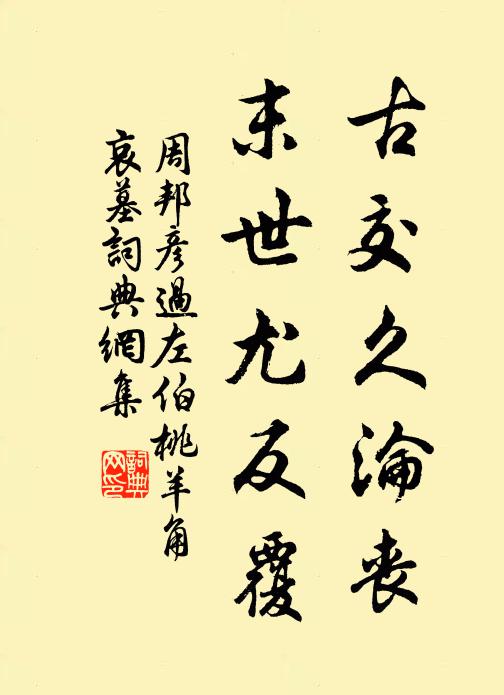 古交久淪喪
末世尤反覆
周邦彥過左伯桃羊角
哀墓詞典網集
詞典網印